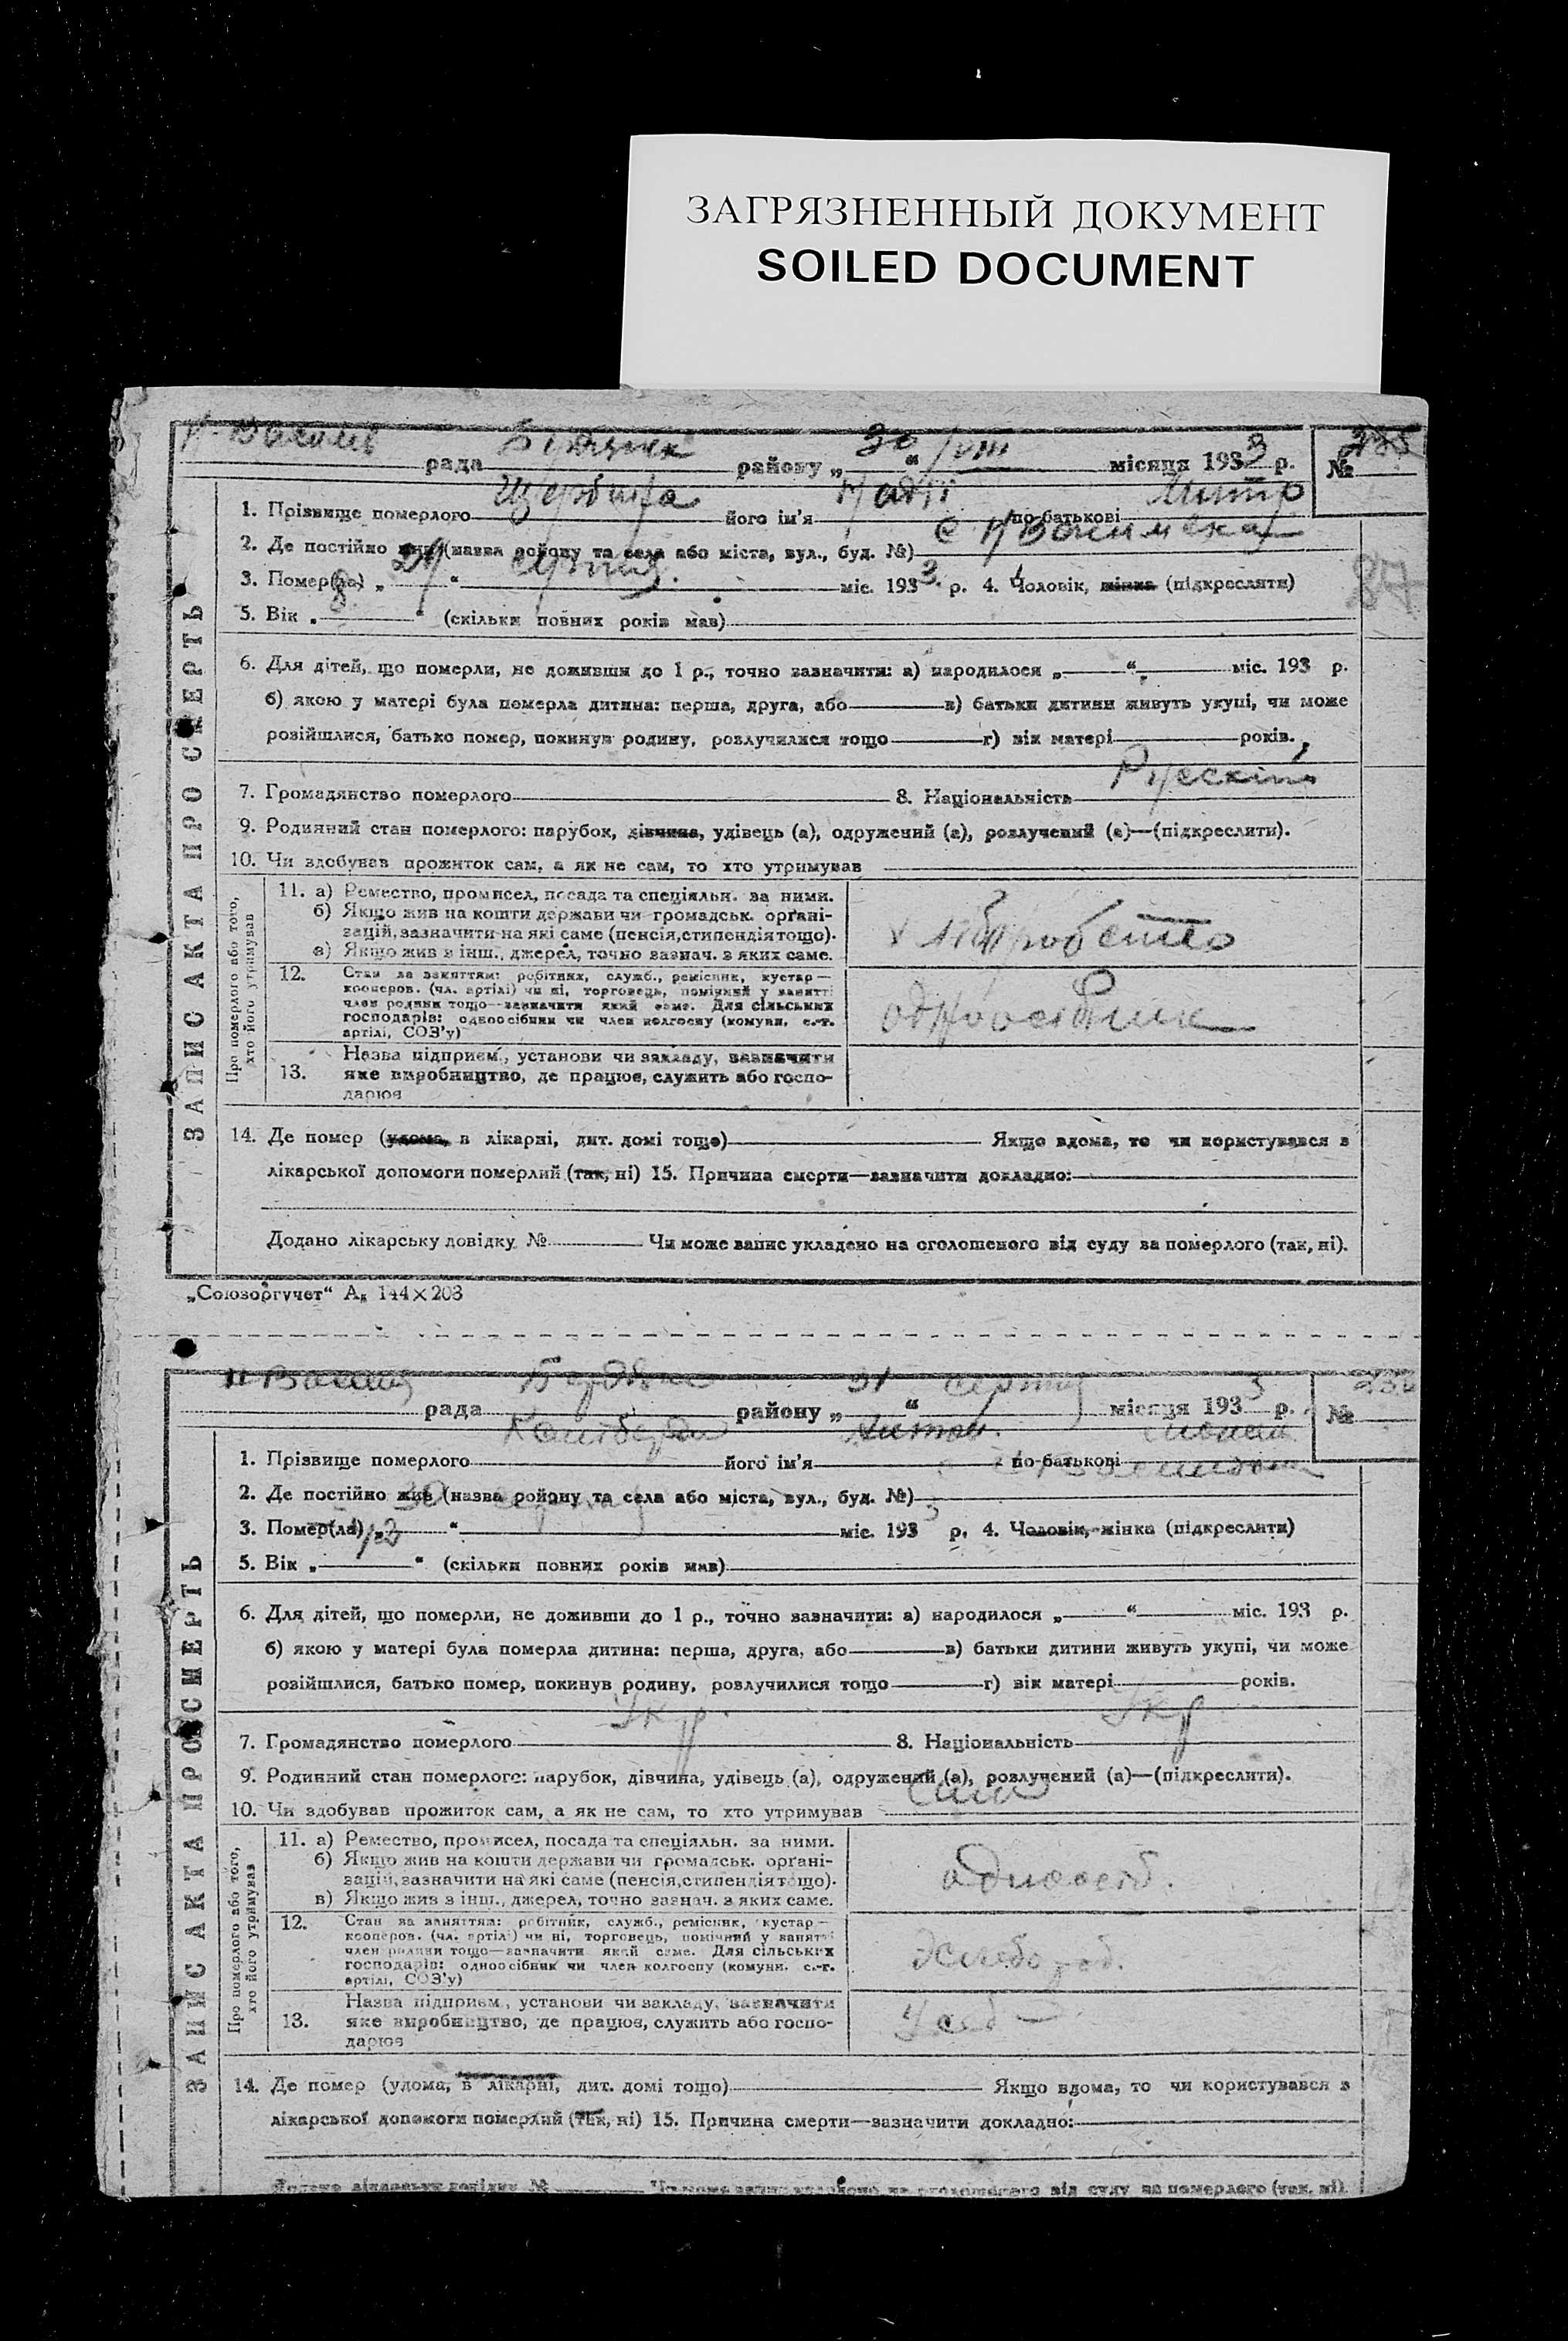 ЗАГРЯЗНЕННЫЙ ДОКУМЕНТ
SOILED DOCUMENT
рада району „ 30 “ /VIII місяця 1933 р. №
1. Прізвище померлого його ім'я по батькові
2. Де постійно жив (назва району та села або міста, вул., буд. №)
3. Помер(ла) „ 29 “ міс. 1933 р. 4. Чоловік, жінка (підкреслити)
5. Вік „ 8 “ (скільки повних років мав)
6. Для дітей, що померли, не доживши до 1 р., точно зазначити: а) народилося „ “ міс. 193 р.
б) якою у матері була померла дитина: перша, друга, або в) батьки дитини живуть укупі, чи може
розійшлися, батько помер, покинув родину, розлучилися тощо г) вік матері років.
7. Громадянство померлого 8. Національність
9. Родинний стан померлого: парубок, дівчина, удівець (а), одружений (а), розлучений (а)—(підкреслити).
10. Чи здобував прожиток сам, а як не сам, то хто утримував
Про померлого або того, хто його утримував
11. а) Ремество, промисел, посада та спеціяльн. за ними.
б) Якщо жив на кошти держави чи громадськ. орґані-
зацій, зазначити на які саме (пенсія, стипендія тощо).
в) Якщо жив з інш., джерел, точно зазнач. з яких саме.
12. Стан за заняттям: робітник, служб., ремісник, кустар—
кооперов. (чл. артілі) чи ні, торговець, помічний у занятті
член родини тощо—зазначити який саме. Для сільських
господарів: одноосібник чи член колгоспу (комуни, с.-г.
артілі, СОЗ'у)
одноосібник
Назва підприєм., установи чи закладу, зазначити
13. яке виробництво, де працює, служить або госпо-
дарює
14. Де помер (удома, в лікарні, дит. домі тощо) Якщо вдома, то чи користувався з
лікарської допомоги померлий (так, ні) 15. Причина смерти—зазначити докладно:
Додано лікарську довідку № Чи може запис укладено на оголошеного від суду за померлого (так, ні).
ЗАПИС АКТА ПРО СМЕРТЬ
„Союзоргучет“ А₅ 144×203
рада району „ 31 “ місяця 1933 р. №
1. Прізвище померлого його ім'я по батькові
2. Де постійно жив (назва району та села або міста, вул., буд. №)
3. Помер(ла) „ 30 “ міс. 1933 р. 4. Чоловік, жінка (підкреслити)
5. Вік „ “ (скільки повних років мав)
6. Для дітей, що померли, не доживши до 1 р., точно зазначити: а) народилося „ “ міс. 193 р.
б) якою у матері була померла дитина: перша, друга, або в) батьки дитини живуть укупі, чи може
розійшлися, батько помер, покинув родину, розлучилися тощо г) вік матері років.
7. Громадянство померлого Укр. 8. Національність Укр
9. Родинний стан померлого: парубок, дівчина, удівець (а), одружений (а), розлучений (а)—(підкреслити).
10. Чи здобував прожиток сам, а як не сам, то хто утримував
Про померлого або того, хто його утримував
11. а) Ремество, промисел, посада та спеціяльн. за ними.
б) Якщо жив на кошти держави чи громадськ. орґані-
зацій, зазначити на які саме (пенсія, стипендія тощо).
в) Якщо жив з інш., джерел, точно зазнач. з яких саме.
одноосіб.
12. Стан за заняттям: робітник, служб., ремісник, кустар—
кооперов. (чл. артілі) чи ні, торговець, помічний у занятті
член родини тощо—зазначити який саме. Для сільських
господарів: одноосібник чи член колгоспу (комуни, с.-г.
артілі, СОЗ'у)
Назва підприєм., установи чи закладу, зазначити
13. яке виробництво, де працює, служить або госпо-
дарює
14. Де помер (удома, в лікарні, дит. домі тощо) Якщо вдома, то чи користувався з
лікарської допомоги померлий (так, ні) 15. Причина смерти—зазначити докладно:
Додано лікарську довідку № Чи може запис укладено на оголошеного від суду за померлого (так, ні).
ЗАПИС АКТА ПРО СМЕРТЬ